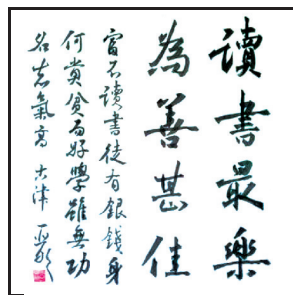 讀書最樂
為善甚佳
富不讀書徒有銀錢身
何貴貧而好學雖無功
名志氣高 大津